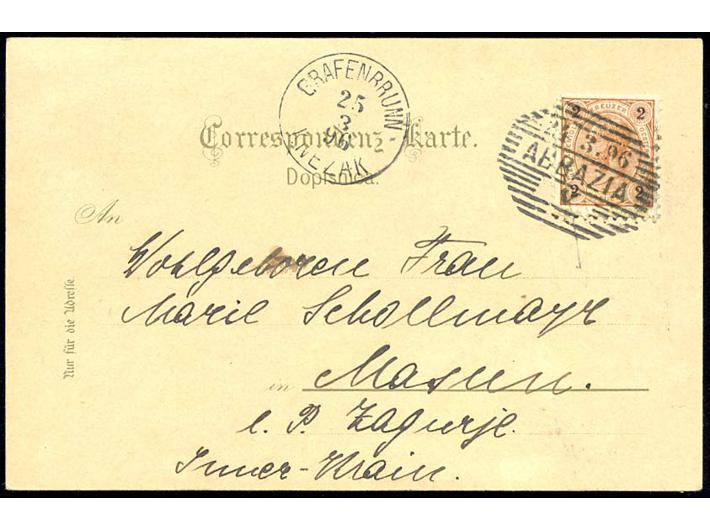 GRAFENBRUNN
25
3
96
KNEZAK
2 KREUZER 2
3.96
ABBAZIA
2 2
Correspondenz-Karte.
Dopisnica.
An
Wohlgeboren Frau
Marie Schollmayr
in Masun.
l. P. Zagurje
Inner-Krain.
Nur für die Adresse